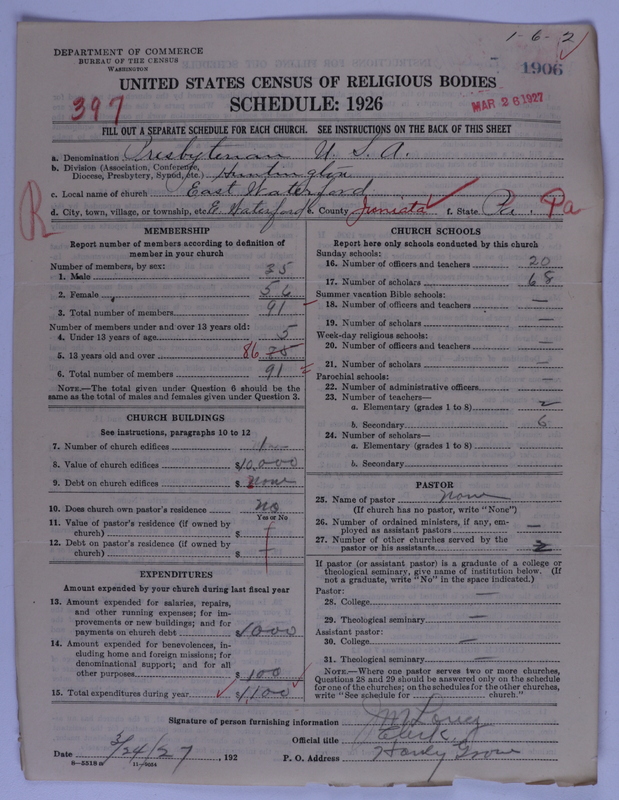 1-6-2
DEPARTMENT OF COMMERCE
BUREAU OF THE CENSUS
WASHINGTON
1906
UNITED STATES CENSUS OF RELIGIOUS BODIES
397
SCHEDULE: 1926
MAR 26 1927
FILL OUT A SEPARATE SCHEDULE FOR EACH CHURCH. SEE INSTRUCTIONS ON THE BACK OF THIS SHEET
a. Denomination Presbyterian U. S. A.
b. Division (Association, Conference,
Diocese, Presbytery, Synod, etc.) Huntington
c. Local name of church East Waterford
d. City, town, village, or township, etc. E. Waterford e. County Juniata f. State Pa. Pa
R
MEMBERSHIP
Report number of members according to definition of
member in your church
Number of members, by sex:
1. Male 35
2. Female 56
3. Total number of members 91
Number of members under and over 13 years old:
4. Under 13 years of age 5
5. 13 years old and over 86
6. Total number of members 91
NOTE.—The total given under Question 6 should be the
same as the total of males and females given under Question 3.
CHURCH BUILDINGS
See instructions, paragraphs 10 to 12
7. Number of church edifices 1
8. Value of church edifices $10,000
9. Debt on church edifices $ None
10. Does church own pastor's residence No
Yes or No
11. Value of pastor's residence (if owned by
church) $ —
12. Debt on pastor's residence (if owned by
church) $ —
EXPENDITURES
Amount expended by your church during last fiscal year
13. Amount expended for salaries, repairs,
and other running expenses; for im-
provements or new buildings; and for
payments on church debt $1000
14. Amount expended for benevolences, in-
cluding home and foreign missions; for
denominational support; and for all
other purposes $100
15. Total expenditures during year $1100
CHURCH SCHOOLS
Report here only schools conducted by this church
Sunday schools:
16. Number of officers and teachers 20
17. Number of scholars 68
Summer vacation Bible schools:
18. Number of officers and teachers —
19. Number of scholars —
Week-day religious schools:
20. Number of officers and teachers —
21. Number of scholars —
Parochial schools:
22. Number of administrative officers —
23. Number of teachers—
a. Elementary (grades 1 to 8)
b. Secondary 6
24. Number of scholars—
a. Elementary (grades 1 to 8) —
b. Secondary —
PASTOR
25. Name of pastor None
(If church has no pastor, write "None")
26. Number of ordained ministers, if any, em-
ployed as assistant pastors —
27. Number of other churches served by the
pastor or his assistants
If pastor (or assistant pastor) is a graduate of a college or
theological seminary, give name of institution below. (If
not a graduate, write "No" in the space indicated.)
Pastor:
28. College —
29. Theological seminary —
Assistant pastor:
30. College —
31. Theological seminary —
NOTE.—Where one pastor serves two or more churches,
Questions 28 and 29 should be answered only on the schedule
for one of the churches; on the schedules for the other churches,
write "See schedule for church."
Signature of person furnishing information J M
Official title Clerk
Date 3/24/27, 192 P. O. Address Grove
8-5518 11-9054